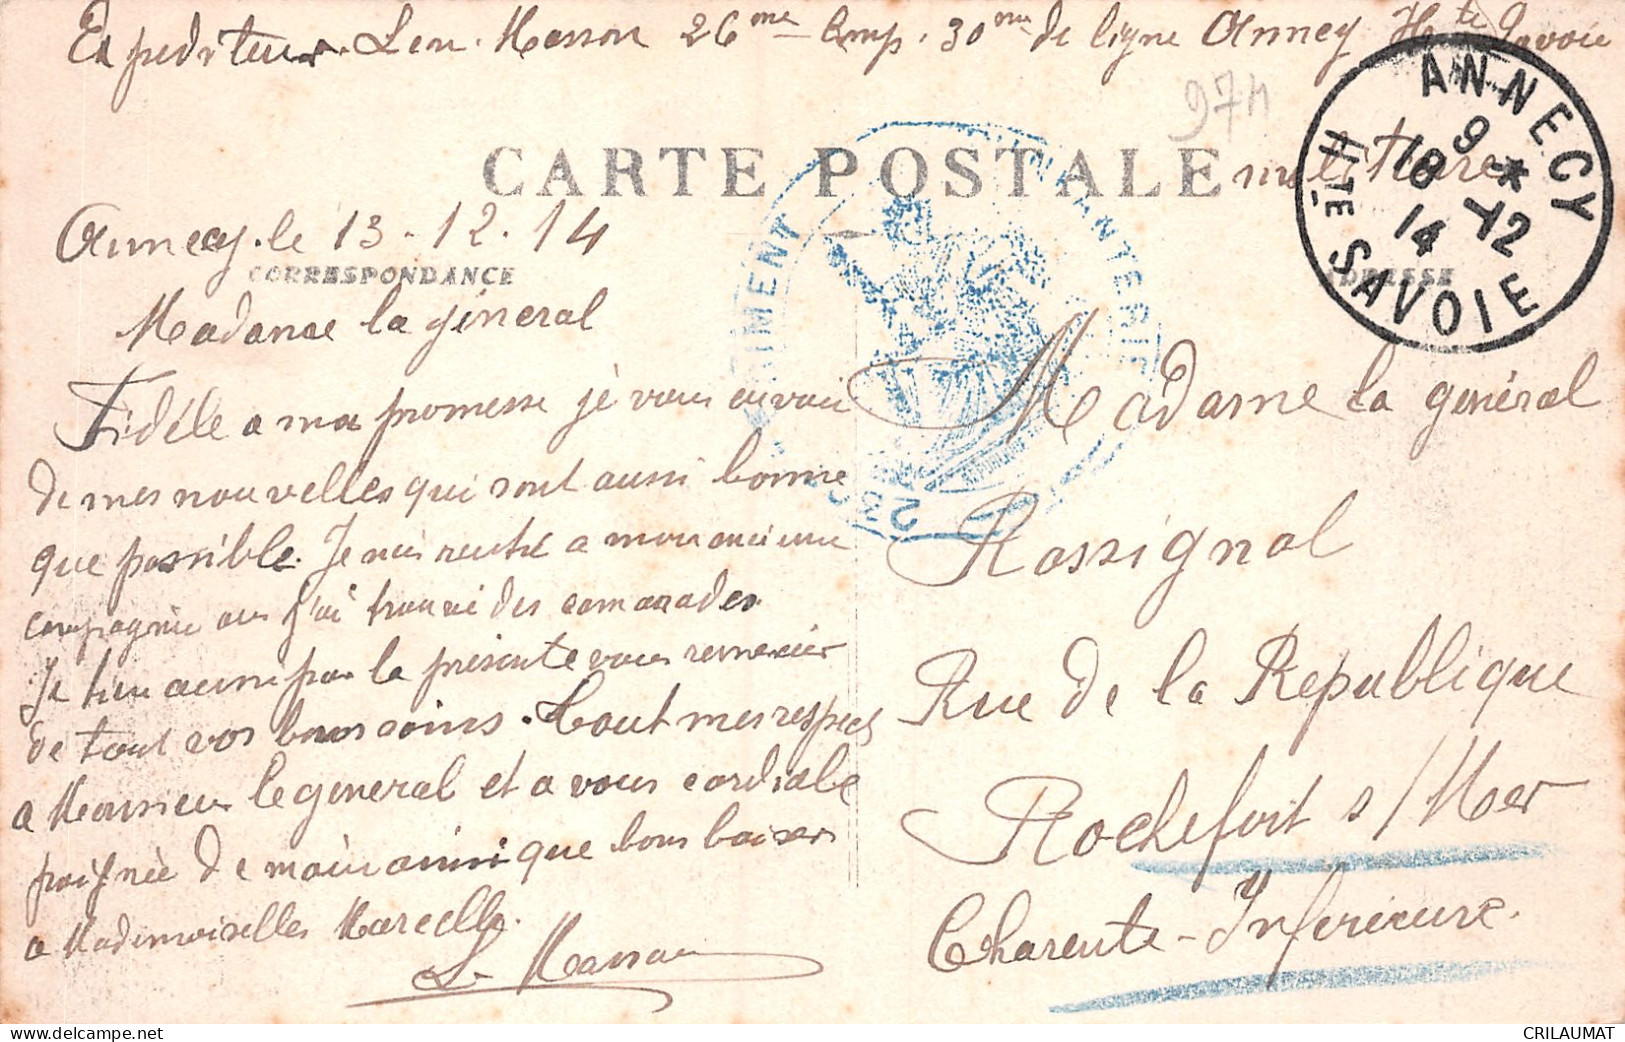 Expediteur. Leon. Masson 26me Comp. 30me de ligne Annecy Hte Savoie
974
CARTE POSTALE militaire
ANNECY
9 *
18 -12
14
Hte SAVOIE
Annecy. le 13 - 12. 14
CORRESPONDANCE
ADRESSE
REGIMENT INFANTERIE
Madame la géneral
Fidéle a ma promesse je vous envoi
de mes nouvelles qui sont aussi bonne
que possible. Je suis rentré a mon ancienne
compagnie ou j'ai trouvé des camarades
Je tien aussi par la présente vous remercier
de tout vos bons soins. Tout mes respects
a Monsieur le general et a vous cordiale
poignée de main ainsi que bons baisers
a Mademoiselles Marcelle.
L. Masson
Madame la général
Rossignol
Rue de la Republique
Rochefort s/Mer
Charente-Inferieure.
CRILAUMAT